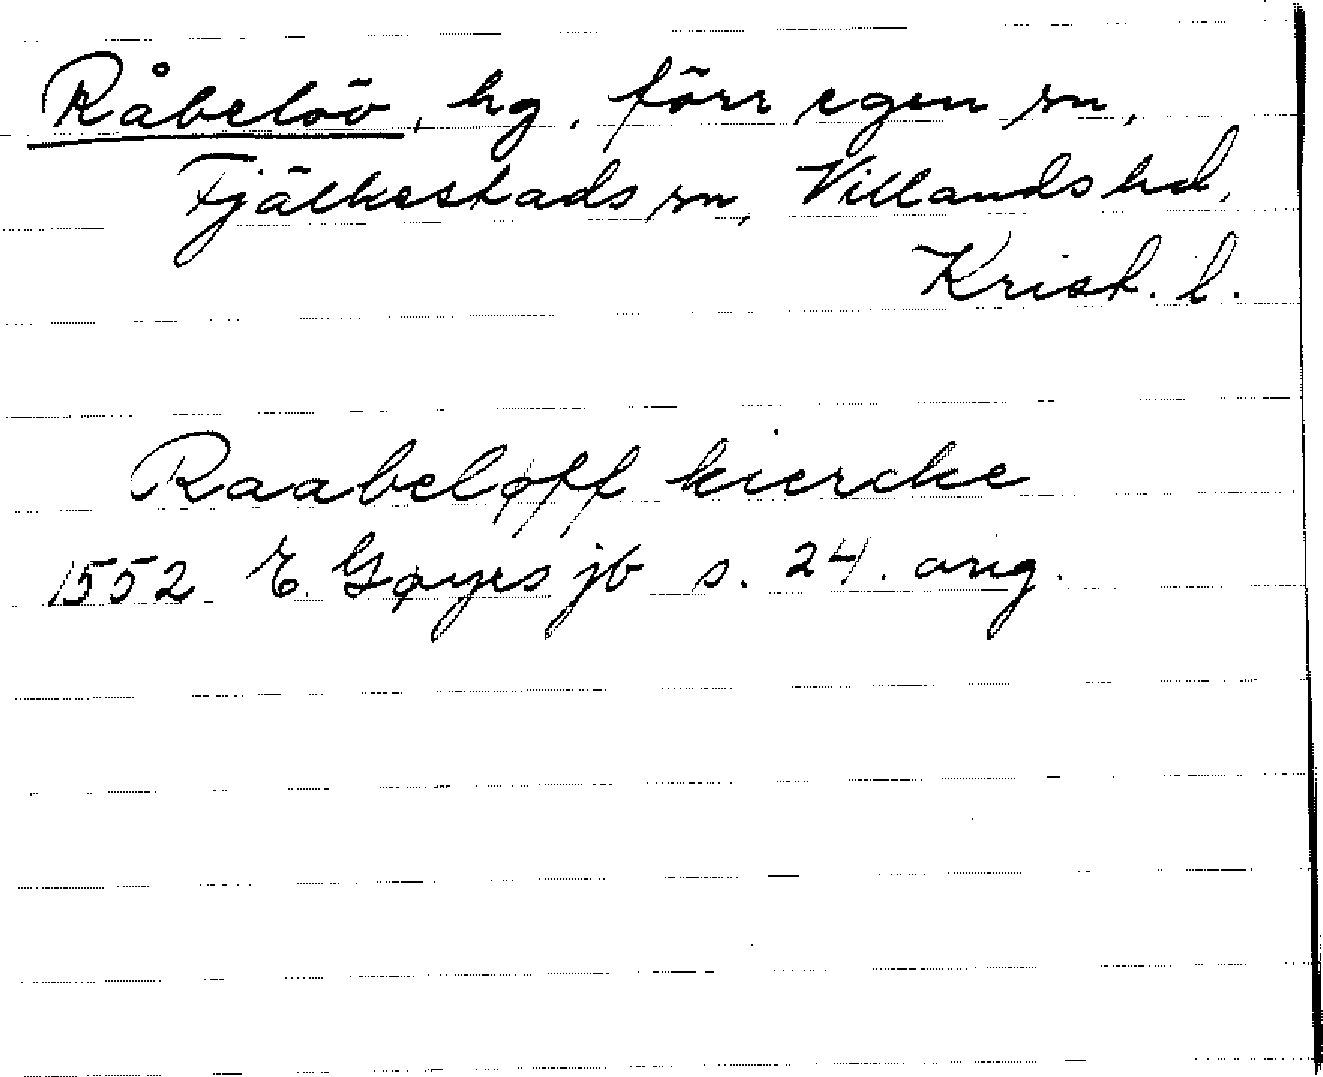 Råbelöv, hg, förr egen sn,
Fjälkestads sn, Villands hd,
Krist. l.
Raabeløff kiercke
1552 E. Gøyes jb s. 24. orig.